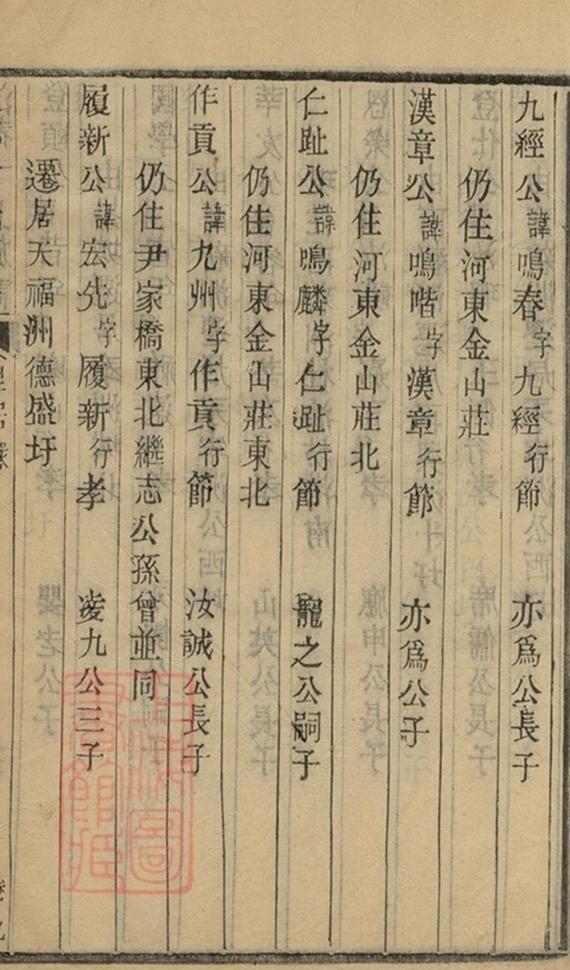 九經公諱鳴春字九經行節 亦爲公長子
仍住河東金山莊
漢章公諱鳴喈字漢章行節 亦爲公子
仍住河東金山莊北
仁趾公諱鳴麟字仁趾行節 寵之公嗣子
仍住河東金山莊東北
作貢公諱九州字作貢行節 汝誠公長子
仍住尹家橋東北繼志公孫曾並同
履新公諱宏先字履新行孝 凌九公三子
遷居天福洲德盛圩